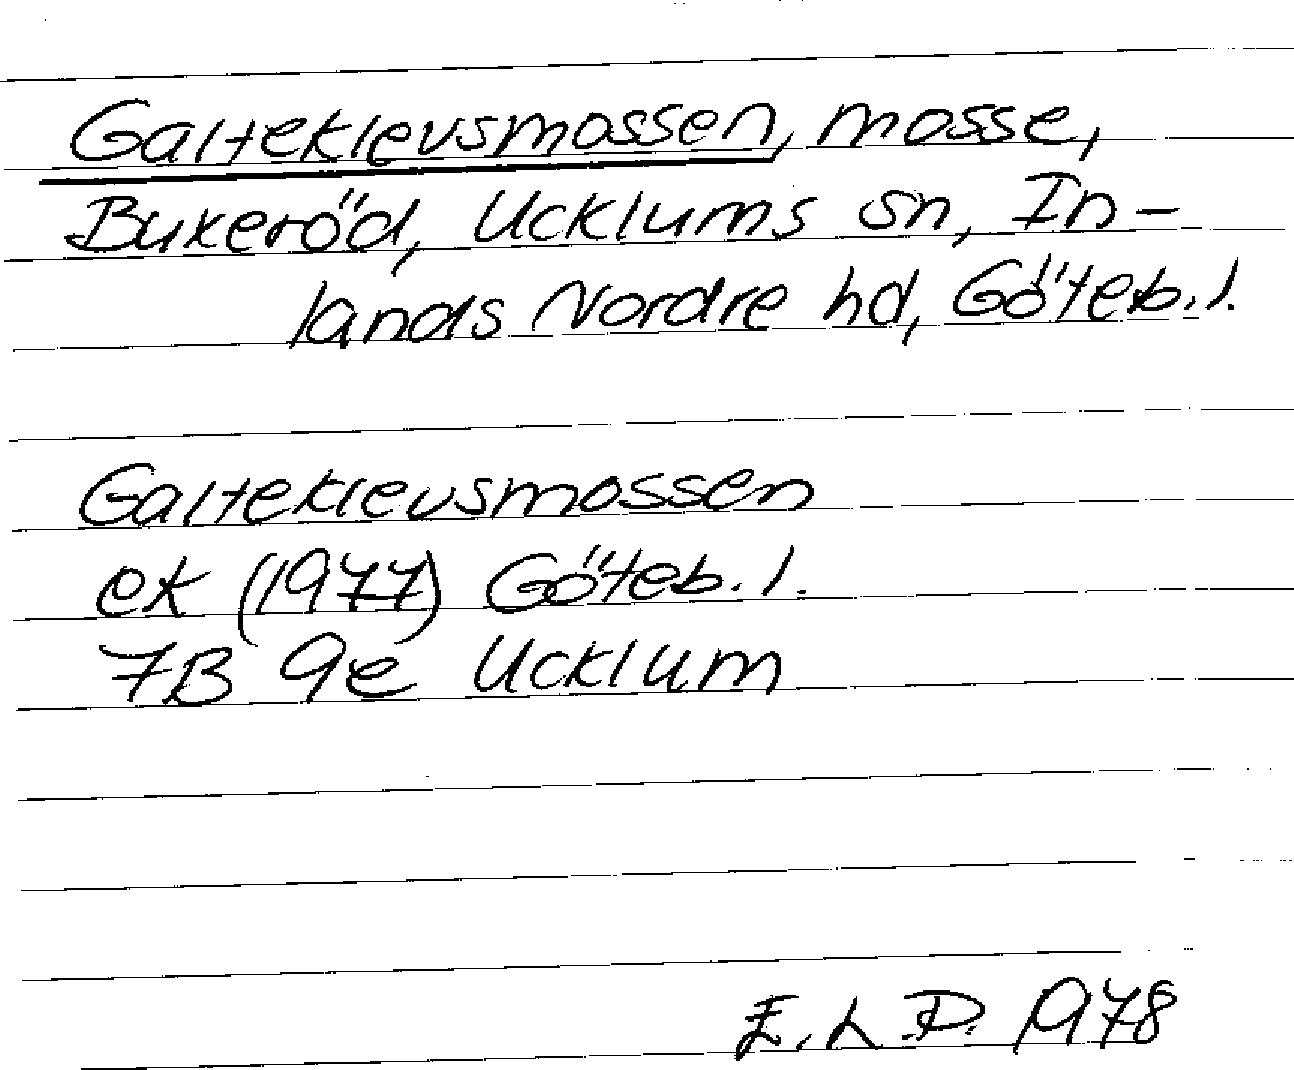 Galteklevsmossen, mosse,
Bukeröd, Ucklums sn, In-
lands Nordre hd, Göteb.l.
Galteklevsmossen
ek (1977) Göteb.l.
7B 9e Ucklum
E.L.D. 1978